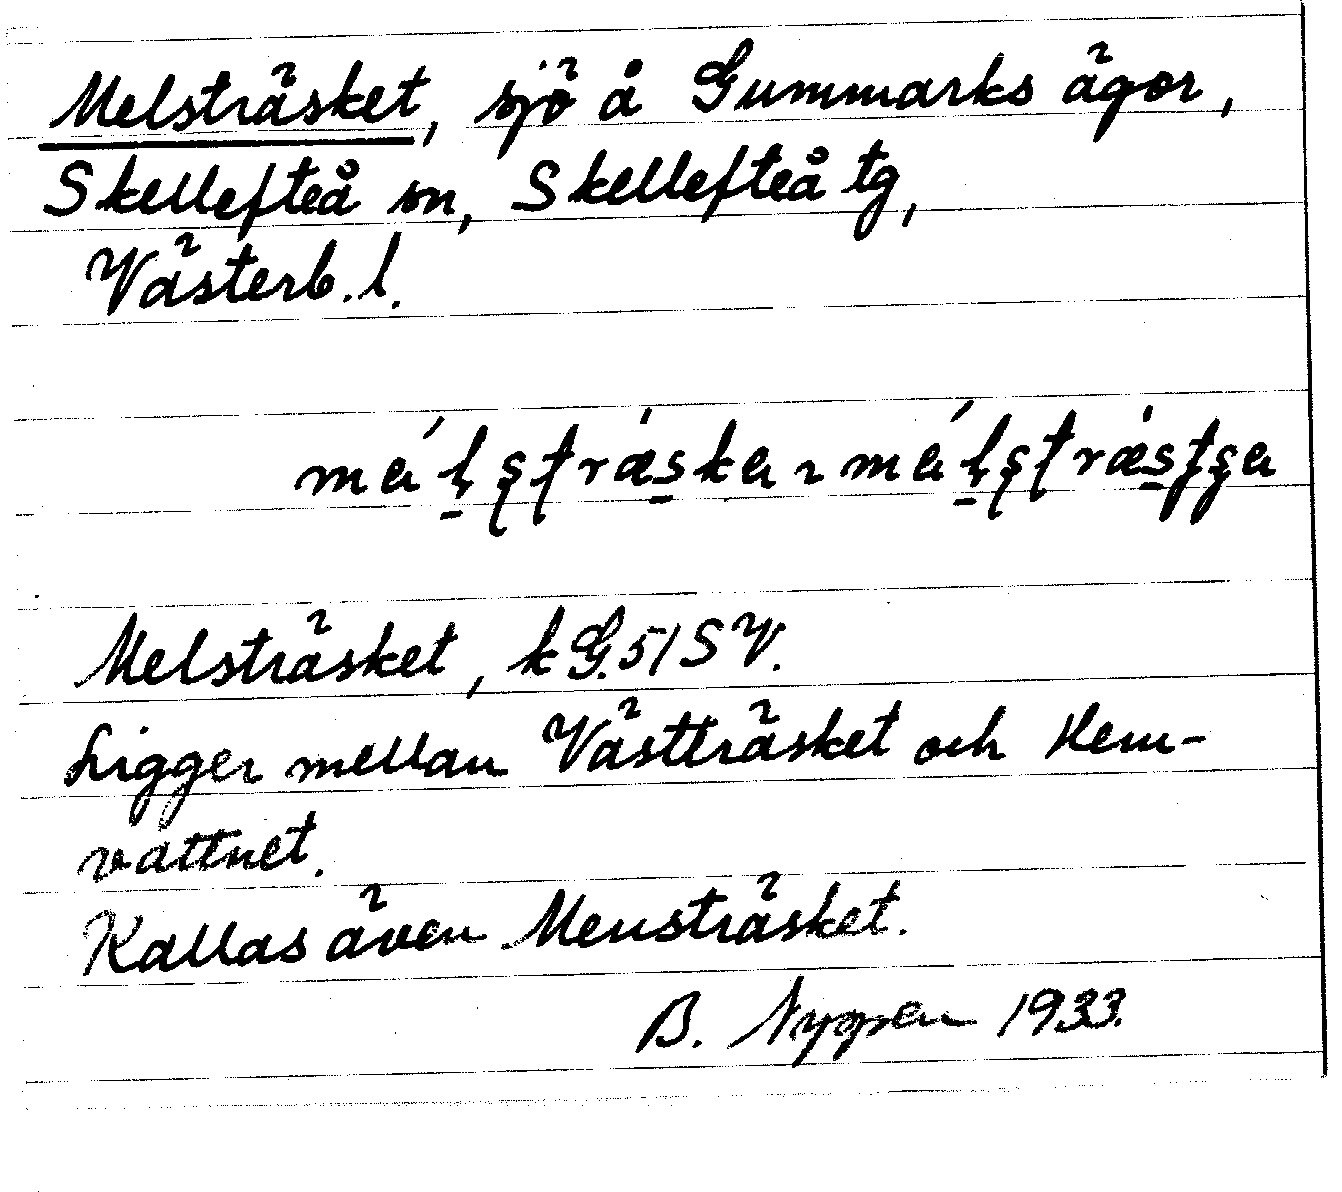 Melsträsket, sjö å Gummarks ägor,
Skellefteå sn, Skellefteå tg,
Västerb. l.
Melsträsket, k G. 51 S V.
Ligger mellan Västträsket och Hem-
vattnet.
Kallas även Mensträsket.
B. 1933.